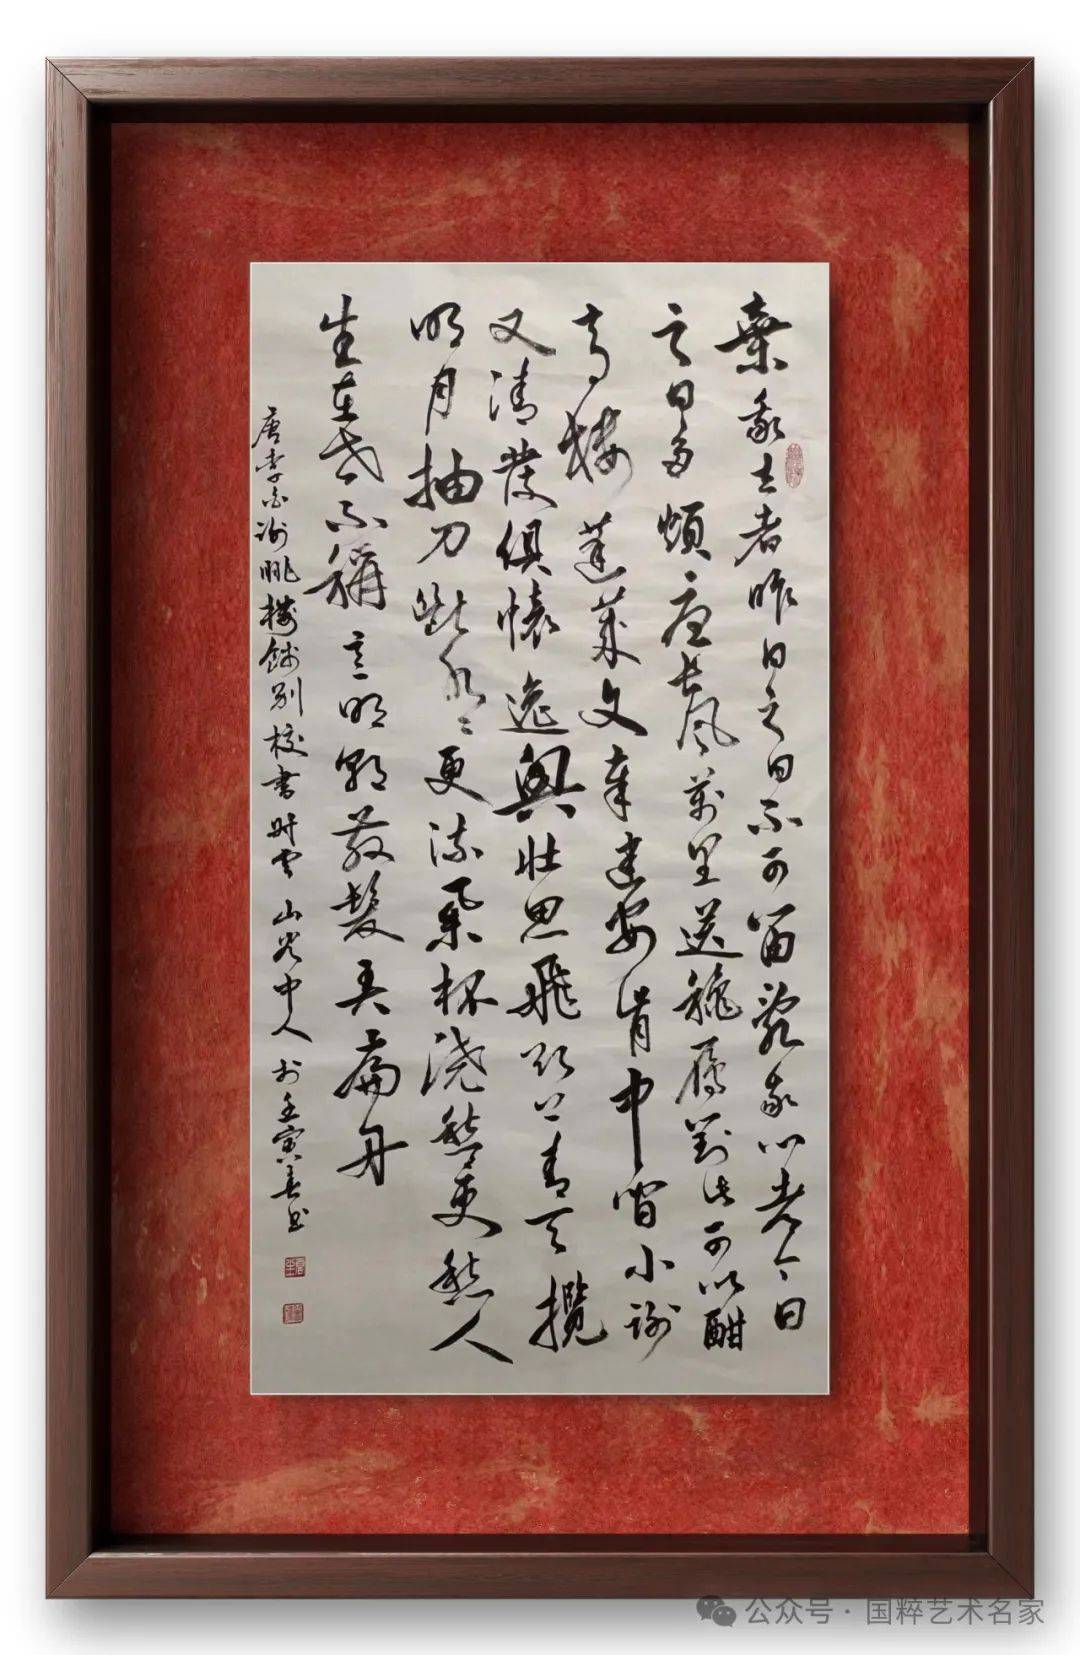 棄我去者昨日之日不可留亂我心者今日
之日多煩憂長風萬里送秋雁對此可以酣
高樓蓬萊文章建安骨中間小謝
又清發俱懷逸興壯思飛欲上青天攬
明月抽刀斷水〻更流舉杯澆愁更愁人
生在世不稱意明朝散髮弄扁舟
唐李白謝眺樓餞別校書叔雲 山谷中人 於壬寅春書
公众号·国粹艺术名家